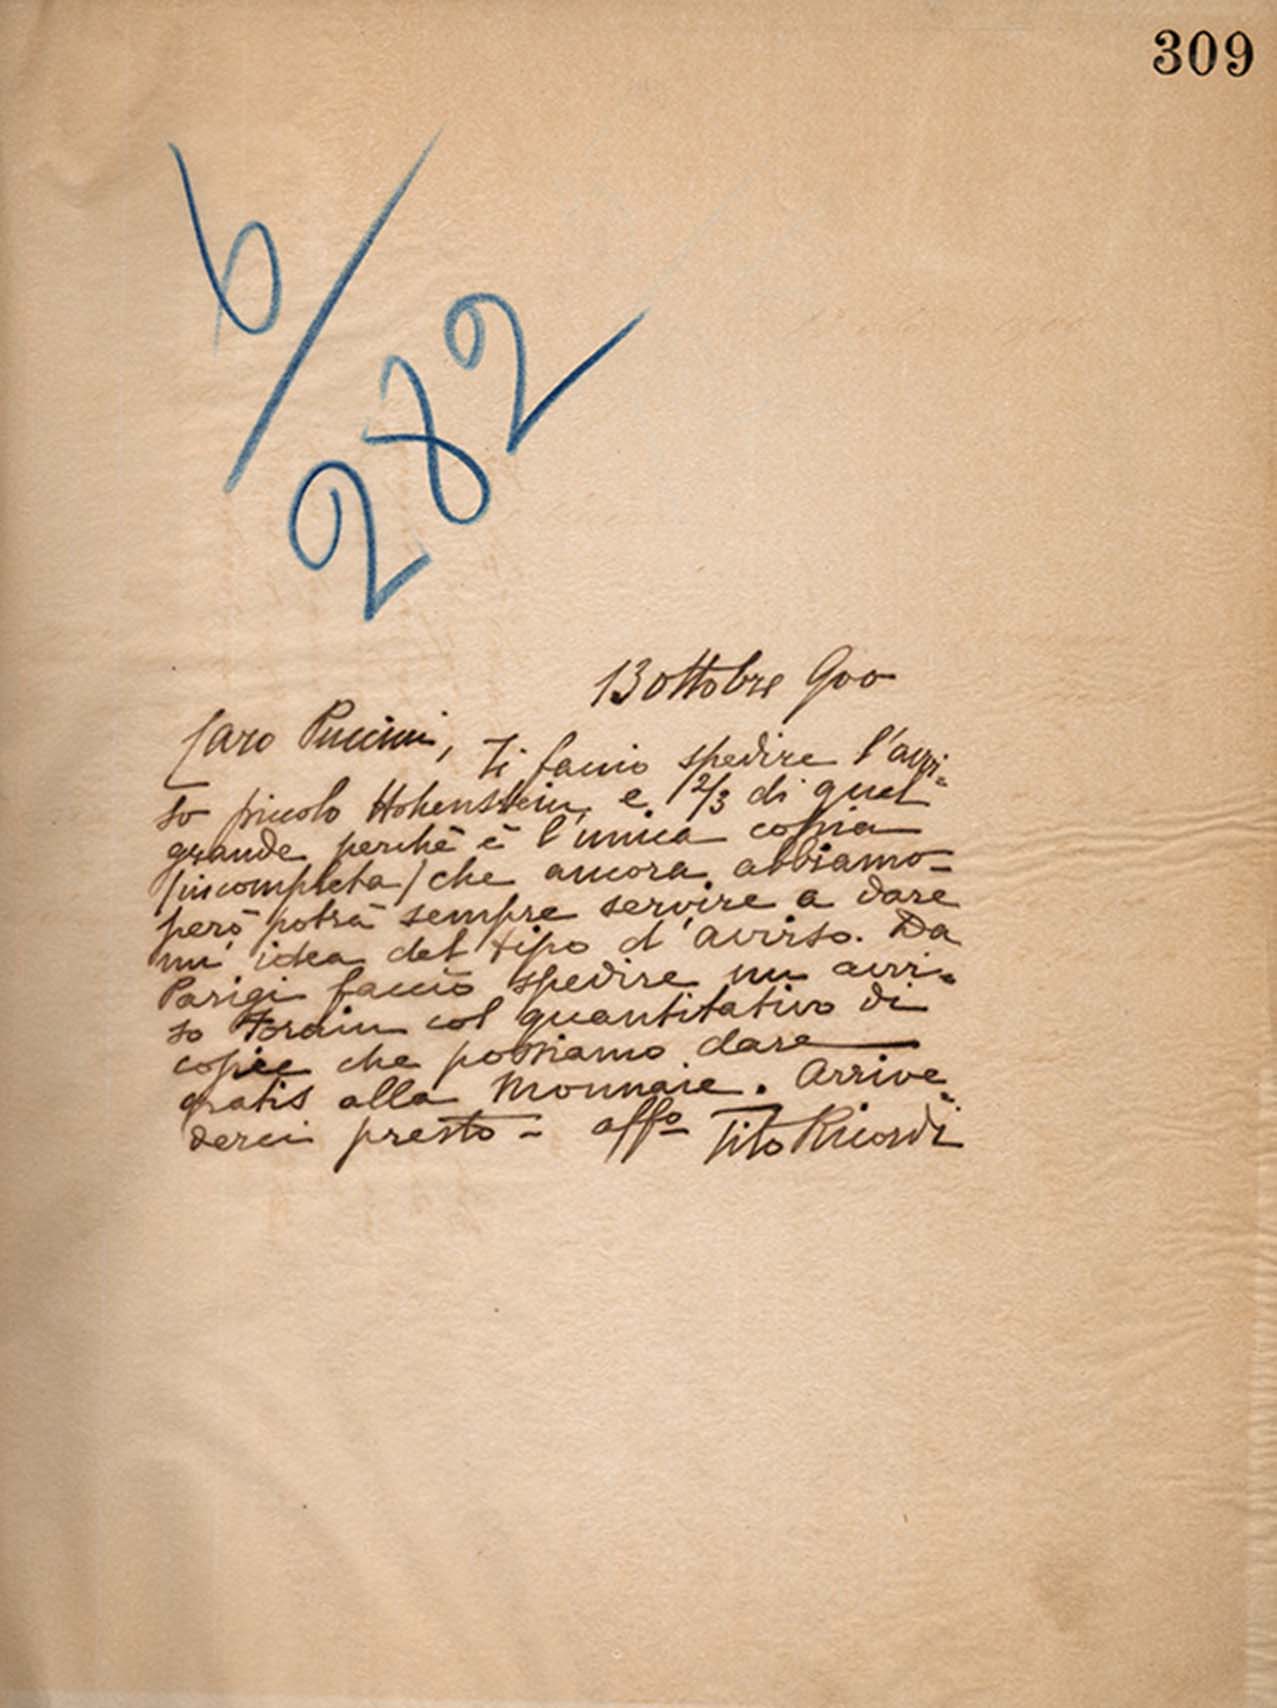 309
6/
282
13 ottobre 900
Caro Puccini, Ti faccio spedire l'avvi-
so piccolo Hohenstein e 2/3 di quel
grande perchè è l'unica copia
(incompleta) che ancora abbiamo-
però potrà sempre servire a dare
un' idea del tipo d'avviso. Da
Parigi faccio spedire un avvi-
so Forain col quantitativo di
copie che possiamo dare
gratis alla Monnaie. Arrive-
derci presto - affo Tito Ricordi